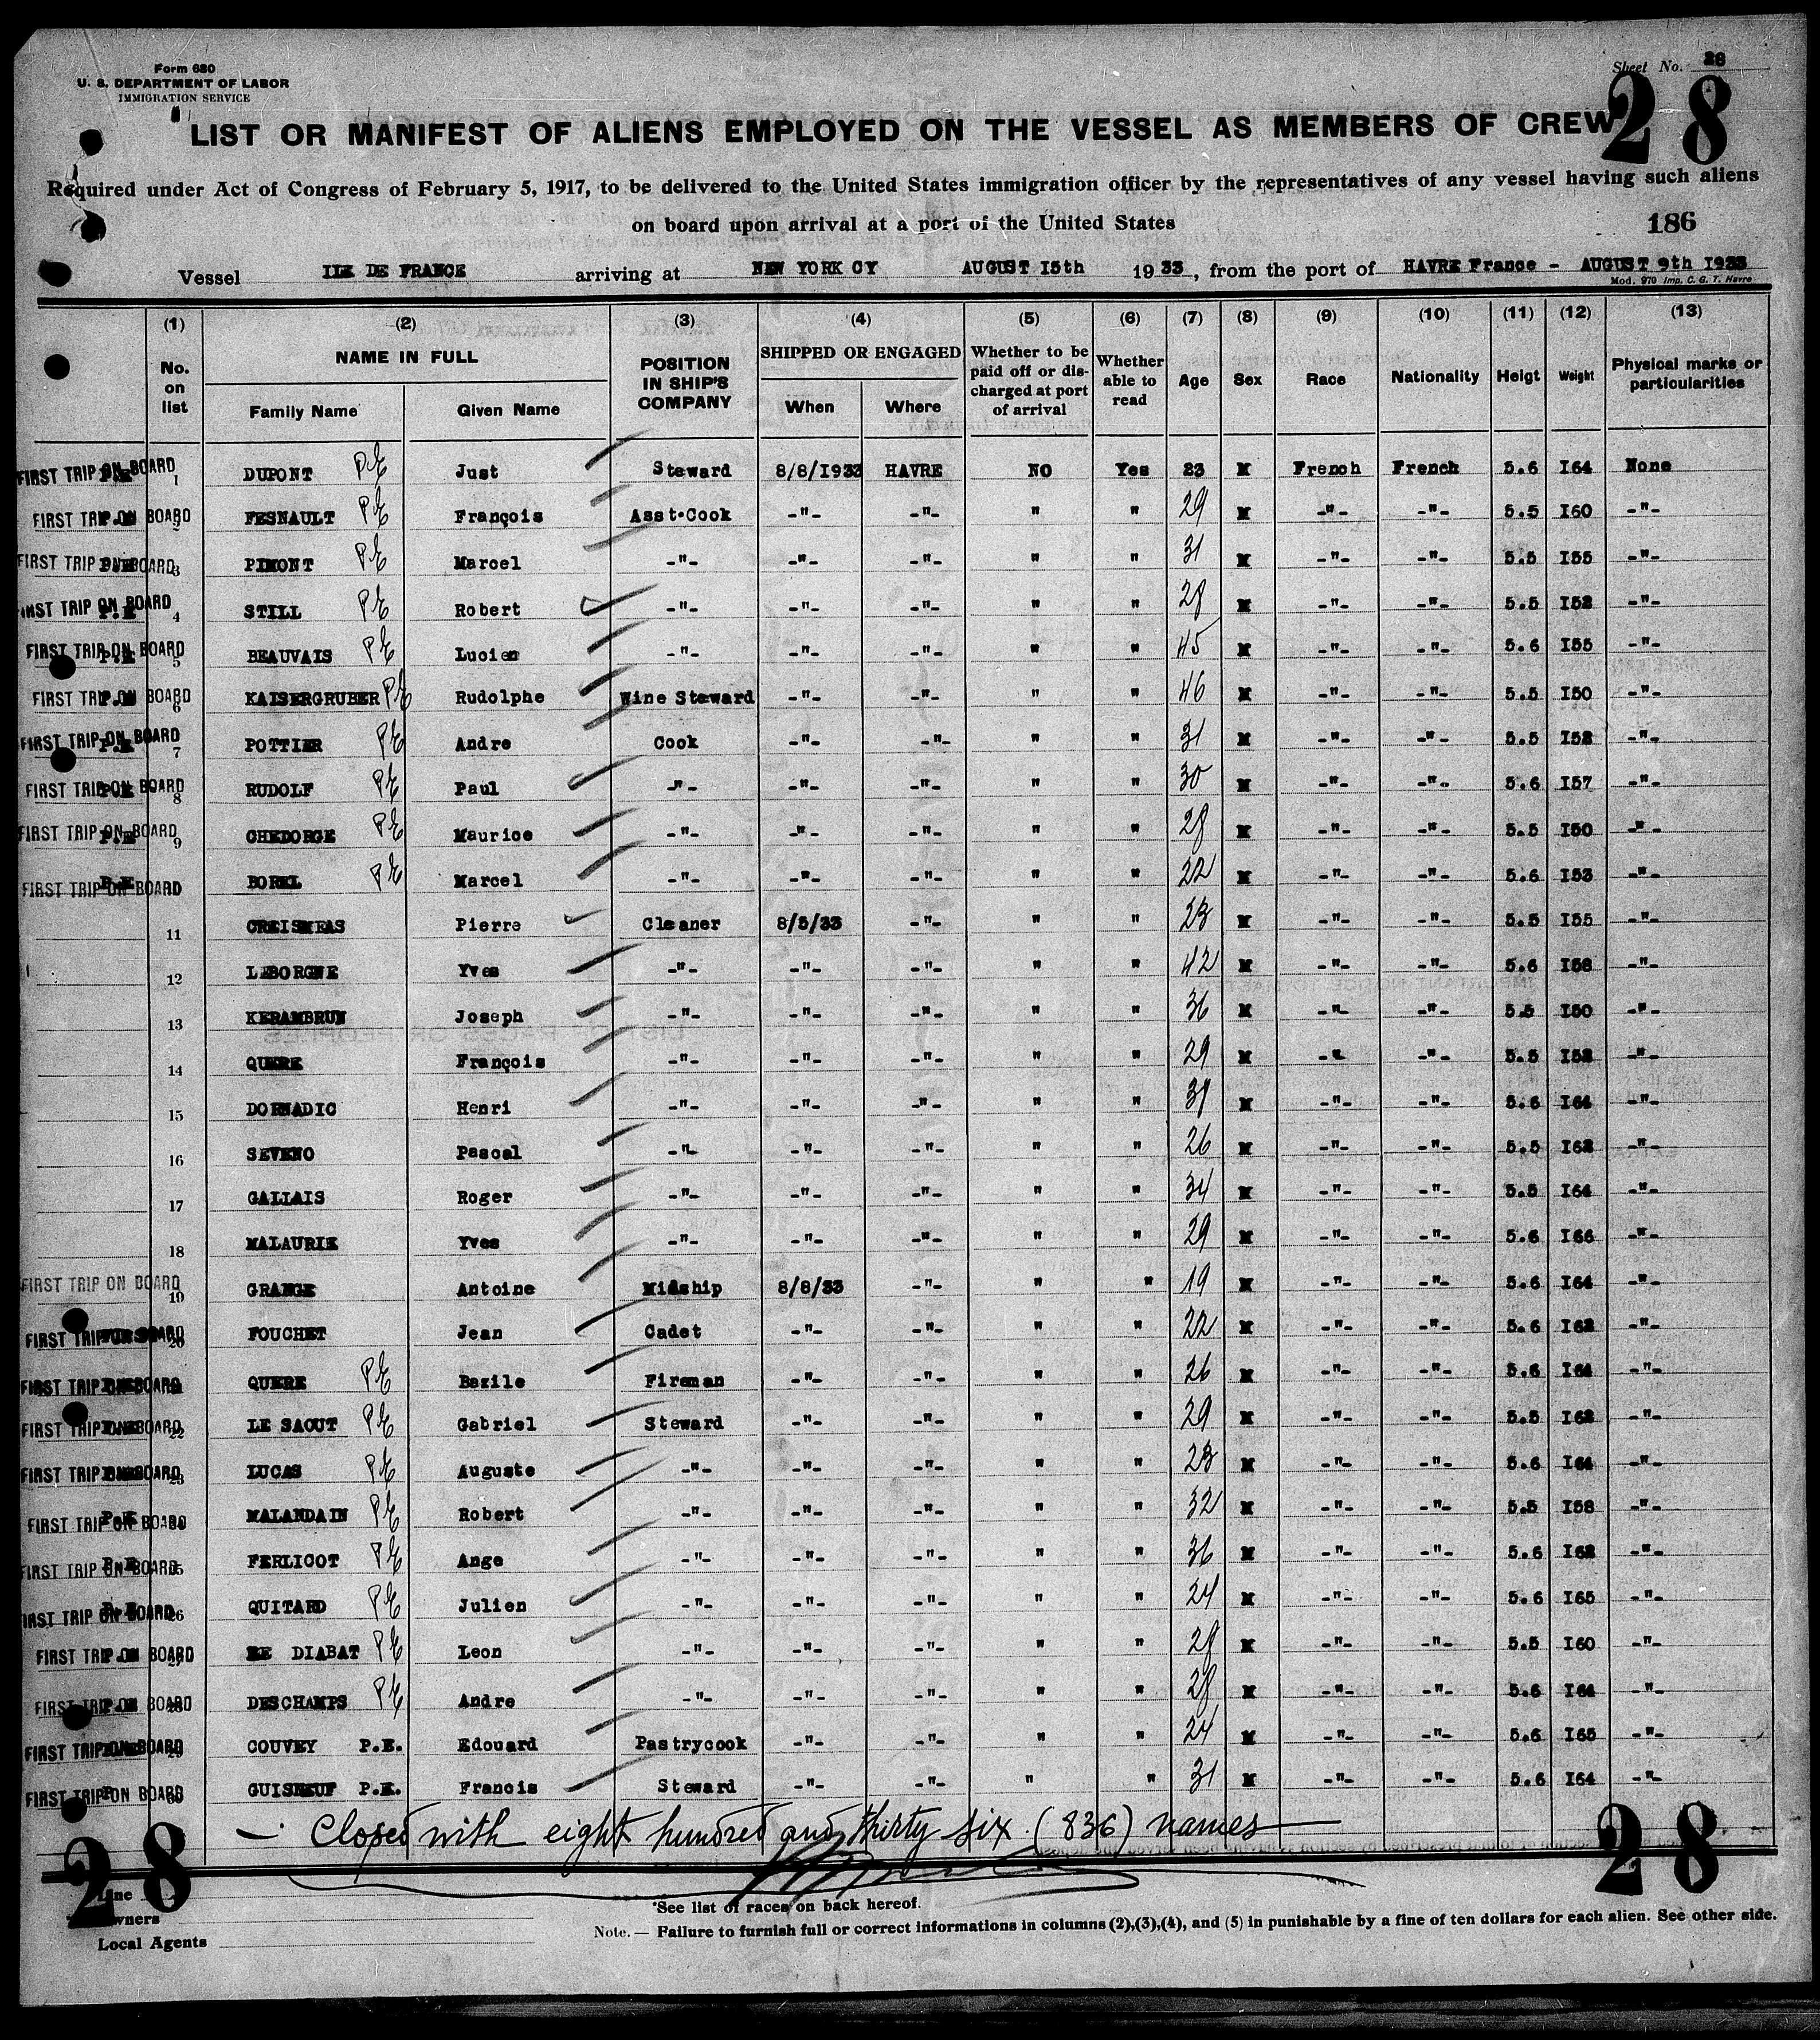 Form 680
U. S. DEPARTMENT OF LABOR
IMMIGRATION SERVICE
Sheet No. 28
28
LIST OR MANIFEST OF ALIENS EMPLOYED ON THE VESSEL AS MEMBERS OF CREW
Required under Act of Congress of February 5, 1917, to be delivered to the United States immigration officer by the representatives of any vessel having such aliens
on board upon arrival at a port of the United States
186
Vessel ILE DE FRANCE arriving at NEW YORK CY AUGUST I5th 1933, from the port of HAVRE France - AUGUST 9th I933
Mod. 970 Imp. C. G. T. Havre
(1) (2) (3) (4) (5) (6) (7) (8) (9) (10) (11) (12) (13)
No. on list NAME IN FULL Family Name Given Name POSITION IN SHIP'S COMPANY SHIPPED OR ENGAGED When Where Whether to be paid off or discharged at port of arrival Whether able to read Age Sex Race Nationality Heigt Weight Physical marks or particularities
FIRST TRIP ON BOARD P.E 1 DUPONT PE Just Steward 8/8/I933 HAVRE NO Yes 23 M French French 5.6 I64 None
FIRST TRIP ON BOARD 2 FESNAULT PE François Asst.Cook -"- -"- " " 29 M -"- -"- 5.5 I60 -"-
FIRST TRIP ON BOARD 3 PIMONT PE Marcel -"- -"- -"- " " 31 M -"- -"- 5.5 I55 -"-
FIRST TRIP ON BOARD P.E 4 STILL PE Robert -"- -"- -"- " " 28 M -"- -"- 5.5 I52 -"-
FIRST TRIP ON BOARD P.E 5 BEAUVAIS PE Lucien -"- -"- -"- " " 45 M -"- -"- 5.6 I55 -"-
FIRST TRIP ON BOARD 6 KAISERGRUBER PE Rudolphe Wine Steward -"- -"- " " 46 M -"- -"- 5.5 I50 -"-
FIRST TRIP ON BOARD P.E 7 POTTIER PE Andre Cook -"- -"- " " 31 M -"- -"- 5.5 I52 -"-
FIRST TRIP ON BOARD 8 RUDOLF PE Paul -"- -"- -"- " " 30 M -"- -"- 5.6 I57 -"-
FIRST TRIP ON BOARD P.E 9 CHEDORGE PE Maurice -"- -"- -"- " " 28 M -"- -"- 5.5 I50 -"-
FIRST TRIP ON BOARD P.E BOREL PE Marcel -"- -"- -"- " " 22 M -"- -"- 5.6 I53 -"-
11 CREISMEAS Pierre Cleaner 8/5/33 -"- " " 23 M -"- -"- 5.5 I55 -"-
12 LEBORGNE Yves -"- -"- -"- " " 42 M -"- -"- 5.6 I58 -"-
13 KERAMBRUN Joseph -"- -"- -"- " " 36 M -"- -"- 5.5 I50 -"-
14 QUERE François -"- -"- -"- " " 29 M -"- -"- 5.5 I52 -"-
15 DORNADIC Henri -"- -"- -"- " " M -"- -"- 5.6 I64 -"-
16 SEVENO Pascal -"- -"- -"- " " 26 M -"- -"- 5.5 I62 -"-
17 GALLAIS Roger -"- -"- -"- " " 34 M -"- -"- 5.5 I64 -"-
18 MALAURIE Yves -"- -"- -"- " " 29 M -"- -"- 5.6 I66 -"-
FIRST TRIP ON BOARD 19 GRANGE Antoine Midship 8/8/33 -"- " " 19 M -"- -"- 5.6 I64 -"-
FIRST TRIP ON BOARD 20 FOUCHET Jean Cadet -"- -"- " " 22 M -"- -"- 5.6 I62 -"-
FIRST TRIP ON BOARD QUERE PE Bazile Fireman -"- -"- " " 26 M -"- -"- 5.6 I64 -"-
FIRST TRIP ON BOARD 22 LE SAOUT PE Gabriel Steward -"- -"- " " 29 M -"- -"- 5.5 I62 -"-
FIRST TRIP ON BOARD 23 LUCAS PE Auguste -"- -"- -"- " " 23 M -"- -"- 5.6 I64 -"-
FIRST TRIP ON BOARD P.E MALANDAIN PE Robert -"- -"- -"- " " 32 M -"- -"- 5.5 I58 -"-
FIRST TRIP ON BOARD P.E FERLICOT PE Ange -"- -"- -"- " " 36 M -"- -"- 5.6 I62 -"-
FIRST TRIP ON BOARD P.E 26 QUITARD PE Julien -"- -"- -"- " " 24 M -"- -"- 5.6 I65 -"-
FIRST TRIP ON BOARD 27 DIABAT PE Leon -"- -"- -"- " " 28 M -"- -"- 5.5 I60 -"-
FIRST TRIP ON BOARD 28 DESCHAMPS PE Andre -"- -"- -"- " " 28 M -"- -"- 5.6 I64 -"-
FIRST TRIP ON BOARD COUVEY P.E. Edouard Pastrycook -"- -"- " " 24 M -"- -"- 5.6 I65 -"-
FIRST TRIP ON BOARD GUISNEUF P.E. Francis Steward -"- -"- " " 31 M -"- -"- 5.6 I64 -"-
— Closed with eight hundred and thirty six (836) names —
28 28
Line
Owners
Local Agents
*See list of races on back hereof.
Note. — Failure to furnish full or correct informations in columns (2),(3),(4), and (5) in punishable by a fine of ten dollars for each alien. See other side.